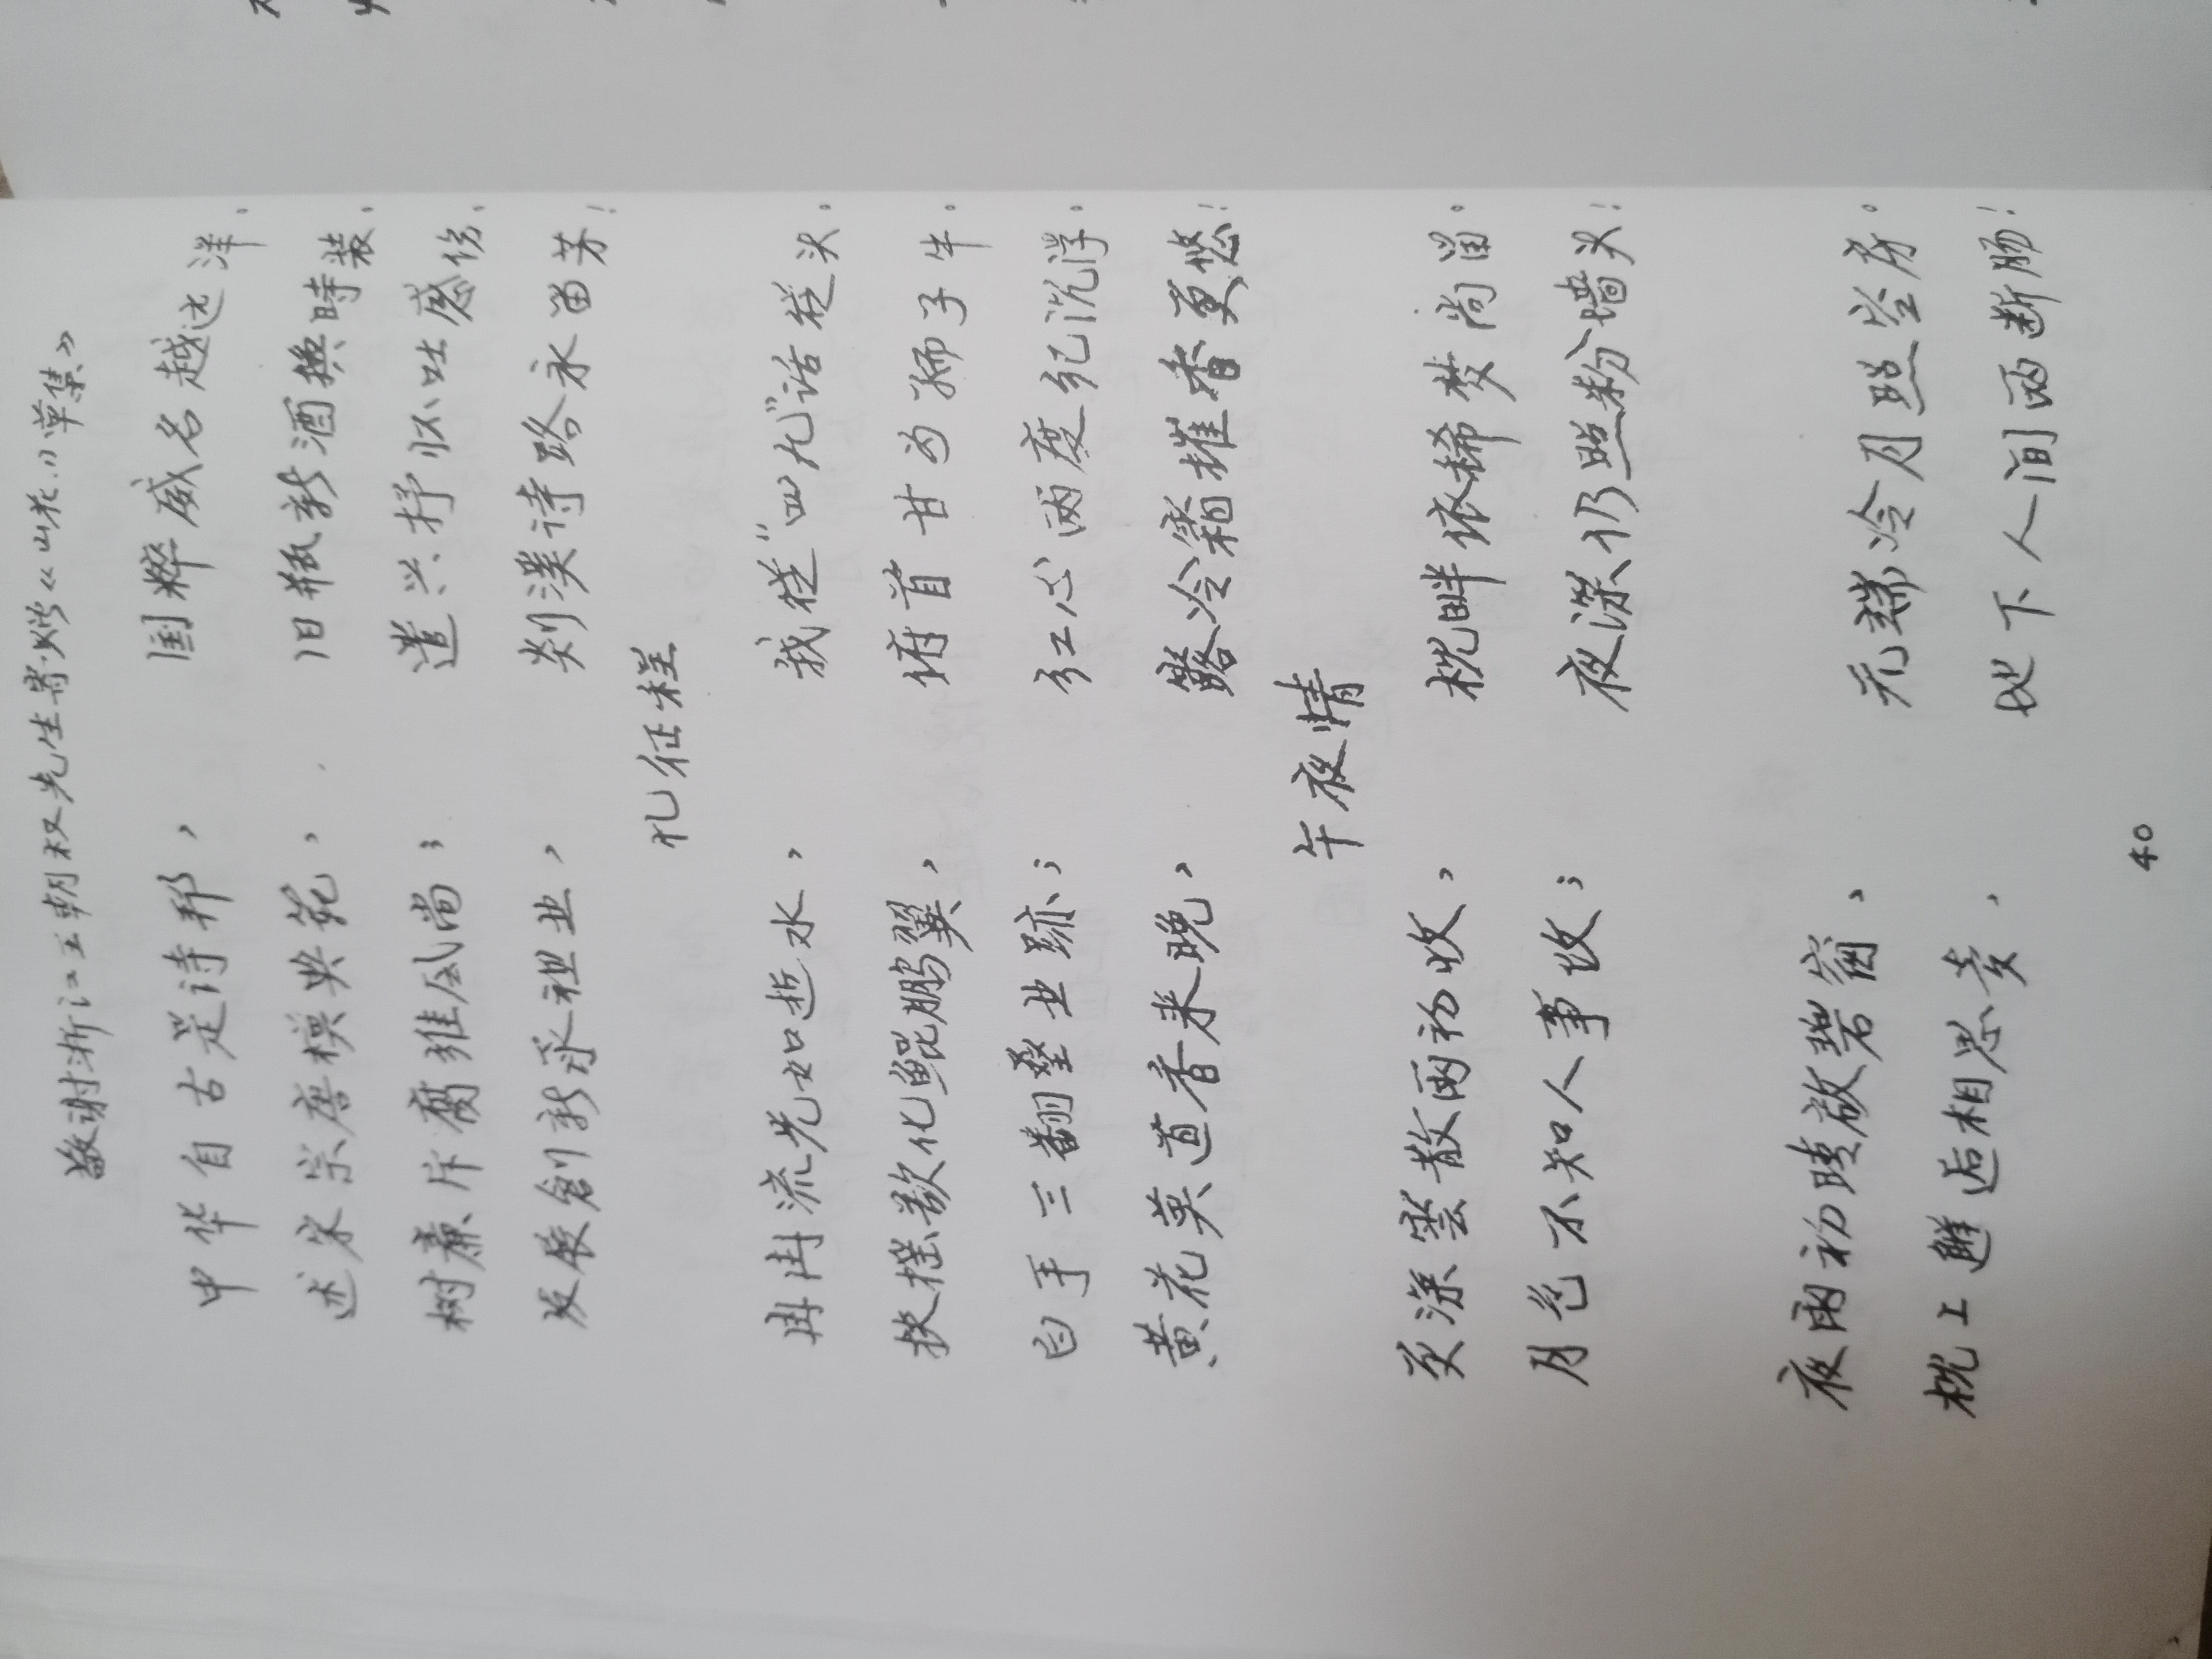 敬谢浙江王朝权先生寄赠《山花》草集》
中华自古是诗邦， 国粹威名越远洋。
述宋宗唐模典范， 旧瓶新酒换時装。
树廉斥腐雅风尚； 遣兴抒怀不吐感伤。
发展創新承祖业， 剡溪诗路永留芳！
札征程
冉冉流光如逝水， 我从“四九”话从头。
扶摇欲化鲲鹏翼， 俯首甘为孺子牛。
白手三翻叠业跡； 红心两度纪沉浮。
黄花莫道香来晚， 露冷籍摧香更悠！
午夜情
更深雲散雨初收， 枕畔依稀梦尚留。
月色不知人事改； 夜深仍照粉墙头！
夜雨初晴啟碧窗， 无端冷月照空房。
枕上邂逅相思麦， 地下人间两断肠！
40